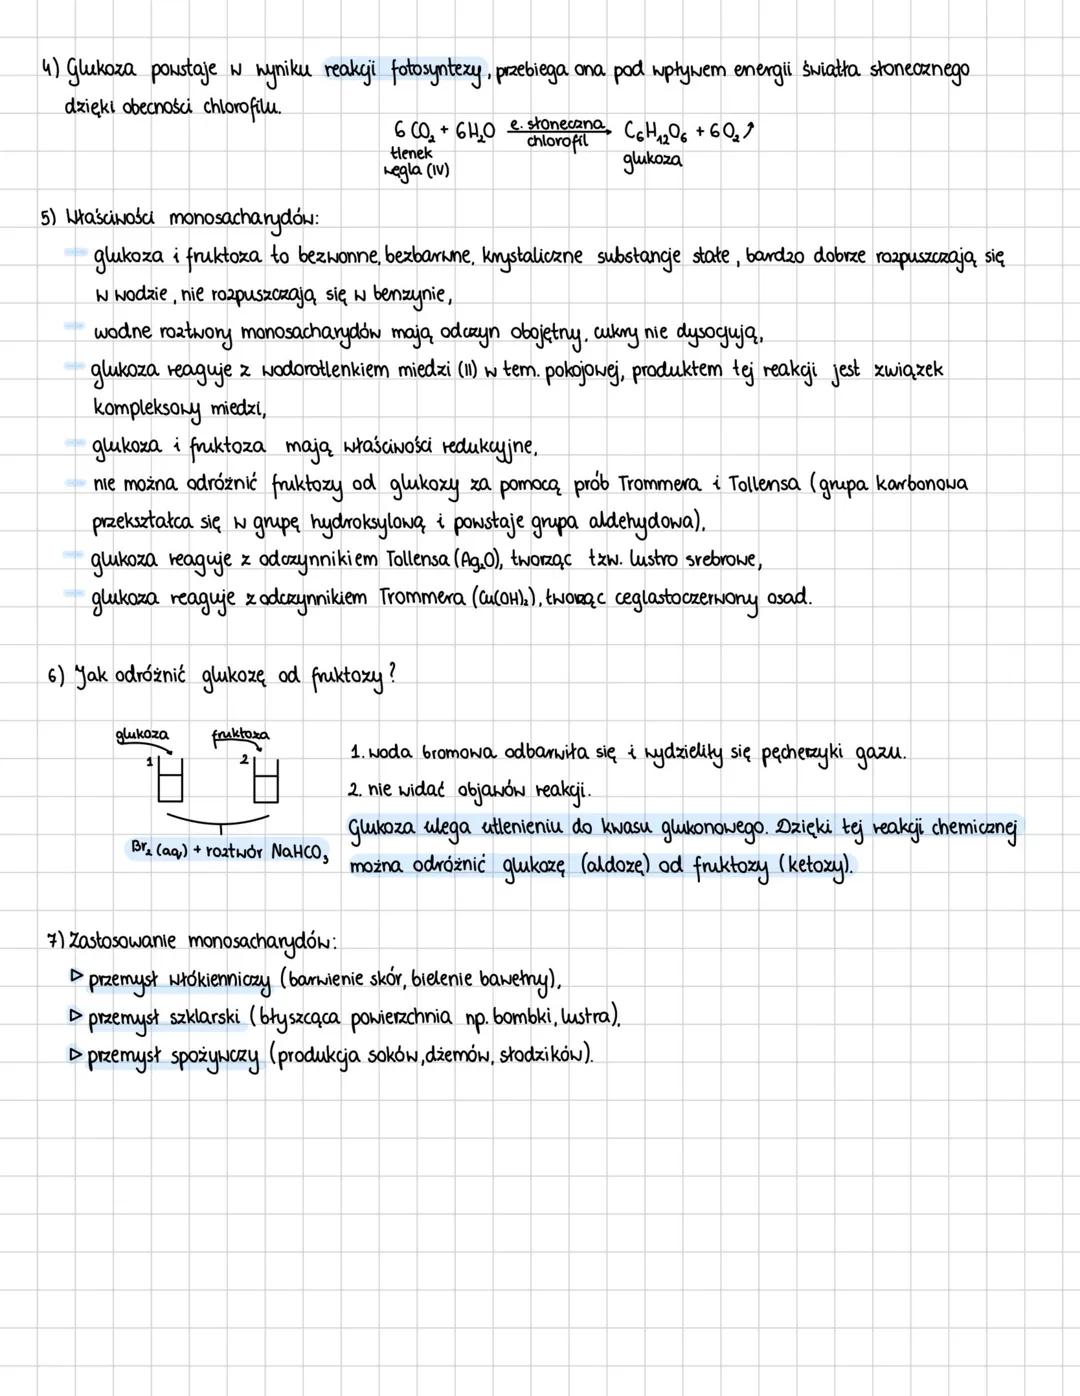 4) Glukoza powstaje w wyniku reakcji fotosyntezy, przebiega ona pod wpływem energii światła słonecznego
dzięki obecności chlorofilu.
6 CO₂ + 6H₂O e. słoneczna → C₆H₁₂O₆ + 6O₂↗
chlorofil
tlenek
węgla (IV)
glukoza
5) Właściwości monosacharydów:
– glukoza i fruktoza to bezwonne, bezbarwne, krystaliczne substancje stałe, bardzo dobrze rozpuszczają się
w wodzie, nie rozpuszczają się w benzynie,
– wodne roztwory monosacharydów mają odczyn obojętny, cukry nie dysocjują,
– glukoza reaguje z wodorotlenkiem miedzi (II) w tem. pokojowej, produktem tej reakcji jest związek
kompleksowy miedzi,
– glukoza i fruktoza mają właściwości redukcyjne,
– nie można odróżnić fruktozy od glukozy za pomocą prób Trommera i Tollensa (grupa karbonowa
przekształca się w grupę hydroksylową i powstaje grupa aldehydowa),
– glukoza reaguje z odczynnikiem Tollensa (Ag₂O), tworząc tzw. lustro srebrowe,
– glukoza reaguje z odczynnikiem Trommera (Cu(OH)₂), tworząc ceglastoczerwony osad.
6) Jak odróżnić glukozę od fruktozy?
glukoza fruktoza
1 2
Br₂ (aq) + roztwór NaHCO₃
1. woda bromowa odbarwiła się i wydzieliły się pęcherzyki gazu.
2. nie widać objawów reakcji.
Glukoza ulega utlenieniu do kwasu glukonowego. Dzięki tej reakcji chemicznej
można odróżnić glukozę (aldozę) od fruktozy (ketozy).
7) Zastosowanie monosacharydów:
▷ przemysł włókienniczy (barwienie skór, bielenie bawełny),
▷ przemysł szklarski (błyszcąca powierzchnia np. bombki, lustra),
▷ przemysł spożywczy (produkcja soków, dżemów, słodzików).